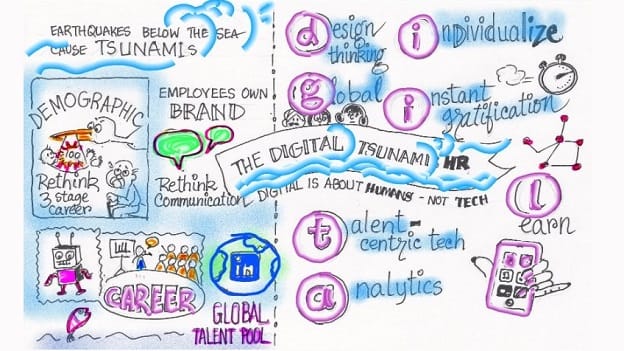 EARTHQUAKES BELOW THE SEA
CAUSE TSUNAMIS
DEMOGRAPHIC
100
Rethink
3 stage
career
EMPLOYEES OWN
BRAND
Rethink
Communication
CAREER
in
GLOBAL
TALENT POOL
design
thinking
individualize
global
instant
gratification
THE DIGITAL TSUNAMI HR
DIGITAL IS ABOUT HUMANS - NOT TECH
talent-
centric tech
learn
analytics